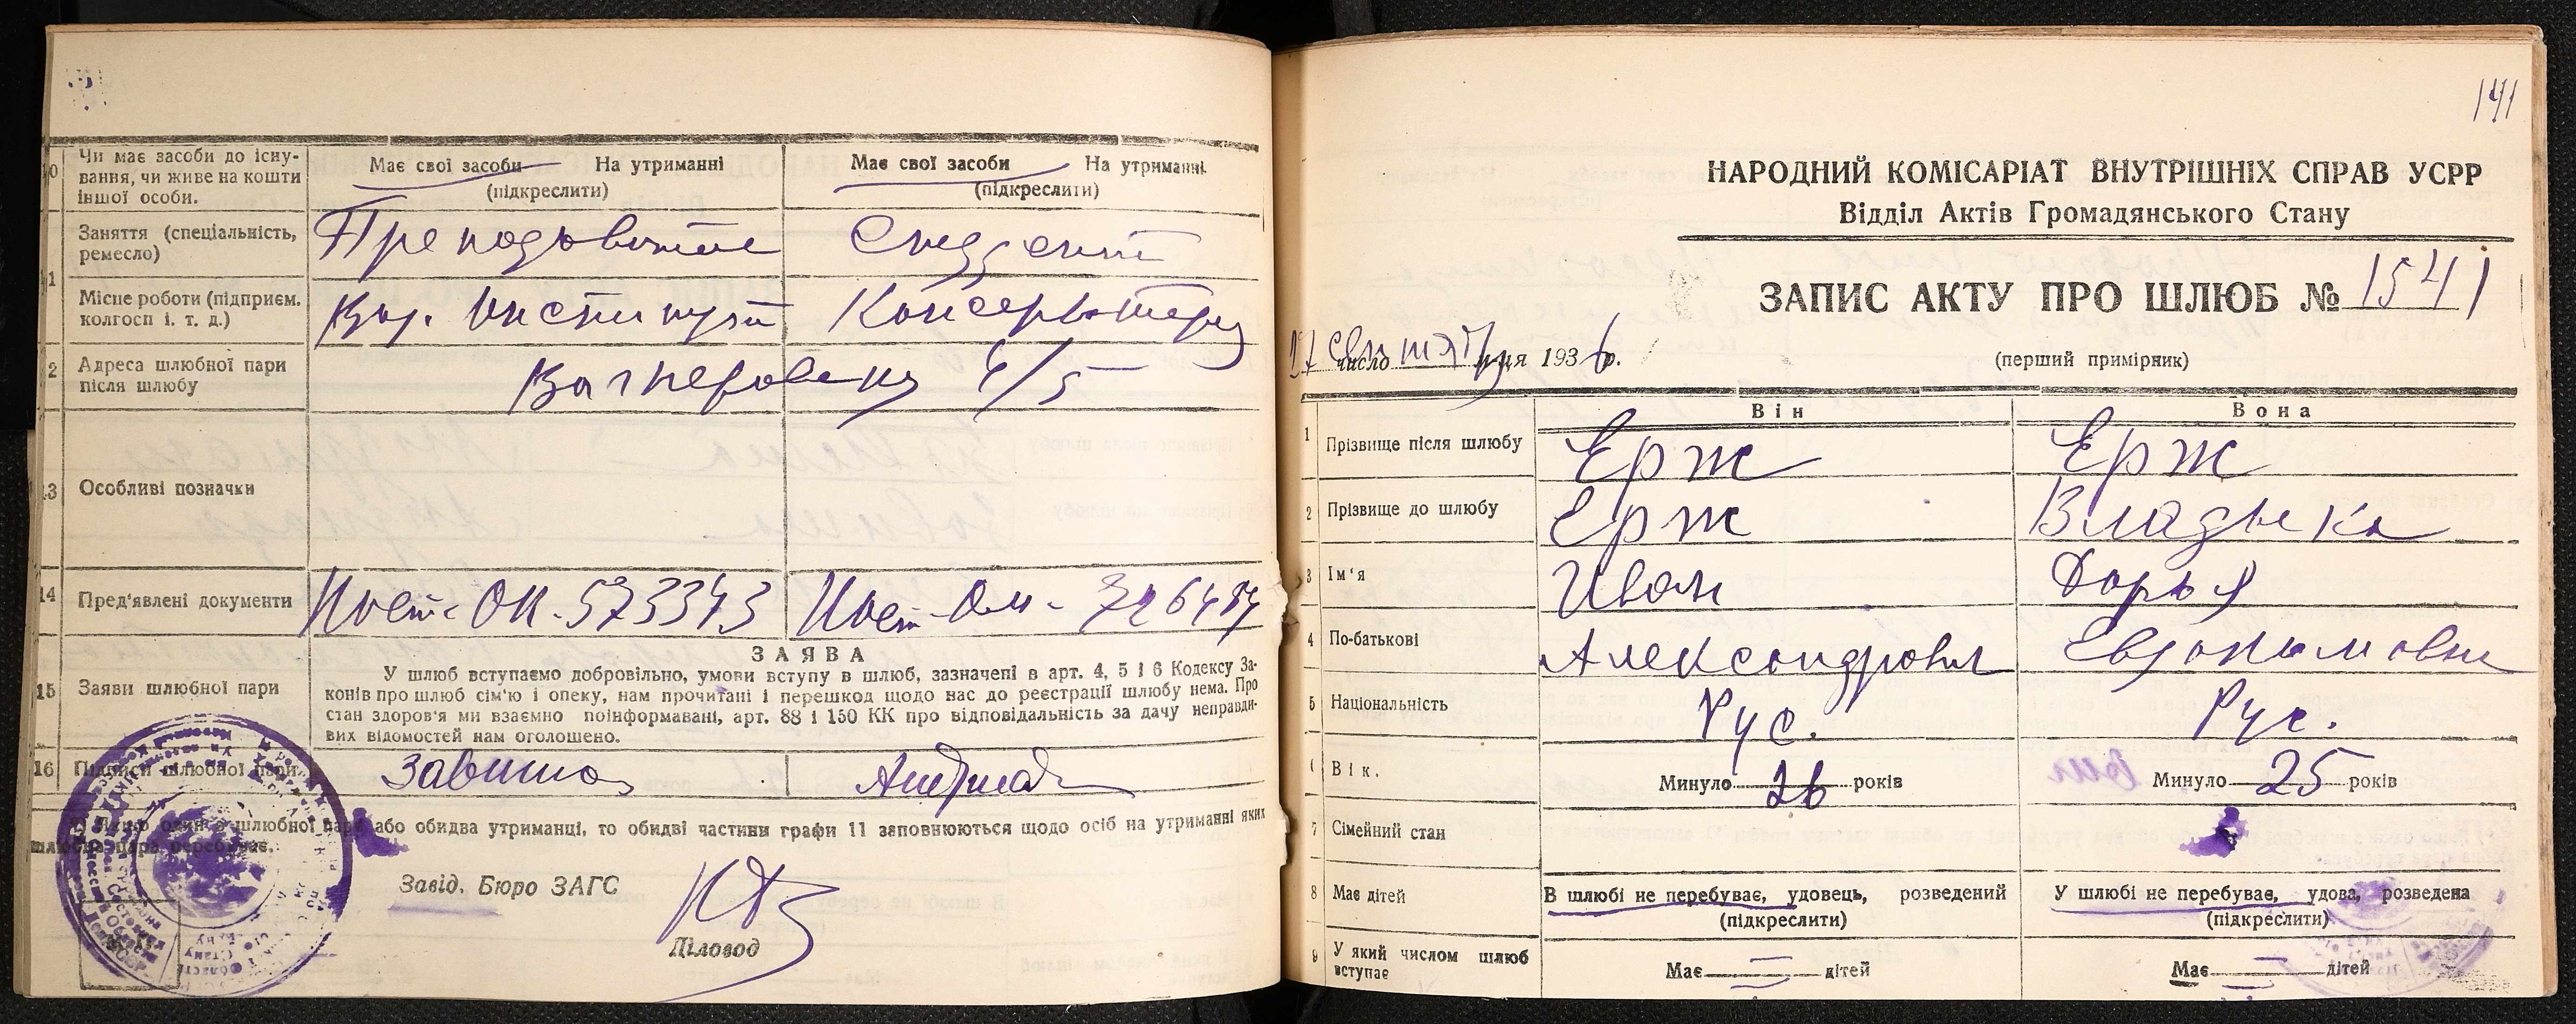 10 Чи має засоби до існу-
вання, чи живе на кошти
іншої особи.
Має свої засоби На утриманні
(підкреслити)
Має свої засоби На утриманні
(підкреслити)
11 Заняття (спеціальність,
ремесло)
Преподаватель
Студент
Місце роботи (підприєм.
колгосп і. т. д.)
Институт
Консерватория
12 Адреса шлюбної пари
після шлюбу
Вагнеровский 4/5
13 Особливі позначки
14 Пред'явлені документи
573343
726484
15 Заяви шлюбної пари
ЗАЯВА
У шлюб вступаємо добровільно, умови вступу в шлюб, зазначені в арт. 4, 5 і 6 Кодексу За-
конів про шлюб сім'ю і опеку, нам прочитані і перешкод щодо нас до реєстрації шлюбу нема. Про
стан здоров'я ми взаємно поінформавані, арт. 88 і 150 КК про відповідальність за дачу неправди-
вих відомостей нам оголошено.
16 Підписи шлюбної пари
Якщо один з шлюбної пари або обидва утриманці, то обидві частини графи 11 заповнюються щодо осіб на утриманні яких
шлюбна пара перебуває.
Завід. Бюро ЗАГС
Діловод
141
НАРОДНИЙ КОМІСАРІАТ ВНУТРІШНІХ СПРАВ УСРР
Відділ Актів Громадянського Стану
ЗАПИС АКТУ ПРО ШЛЮБ № 1541
(перший примірник)
17 число сентября м-ця 1936 р.
Він
Вона
1 Прізвище після шлюбу
Ерж
Ерж
2 Прізвище до шлюбу
Ерж
Владыка
3 Ім'я
Иван
Дарья
4 По-батькові
Александрович
Евдокимовна
5 Національність
Рус.
Рус.
6 Вік.
Минуло 26 років
Минуло 25 років
7 Сімейний стан
8 Має дітей
В шлюбі не перебуває, удовець, розведений
(підкреслити)
У шлюбі не перебуває, удова, розведена
(підкреслити)
9 У який числом шлюб
вступає
Має — дітей
Має — дітей